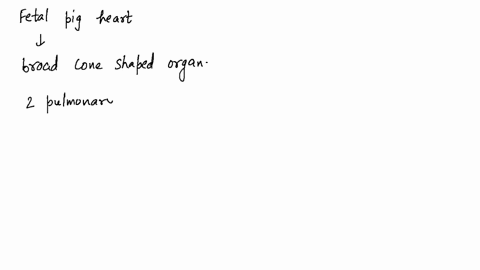 Fetal pig heart
↓
broad cone shaped organ.
2 pulmonar